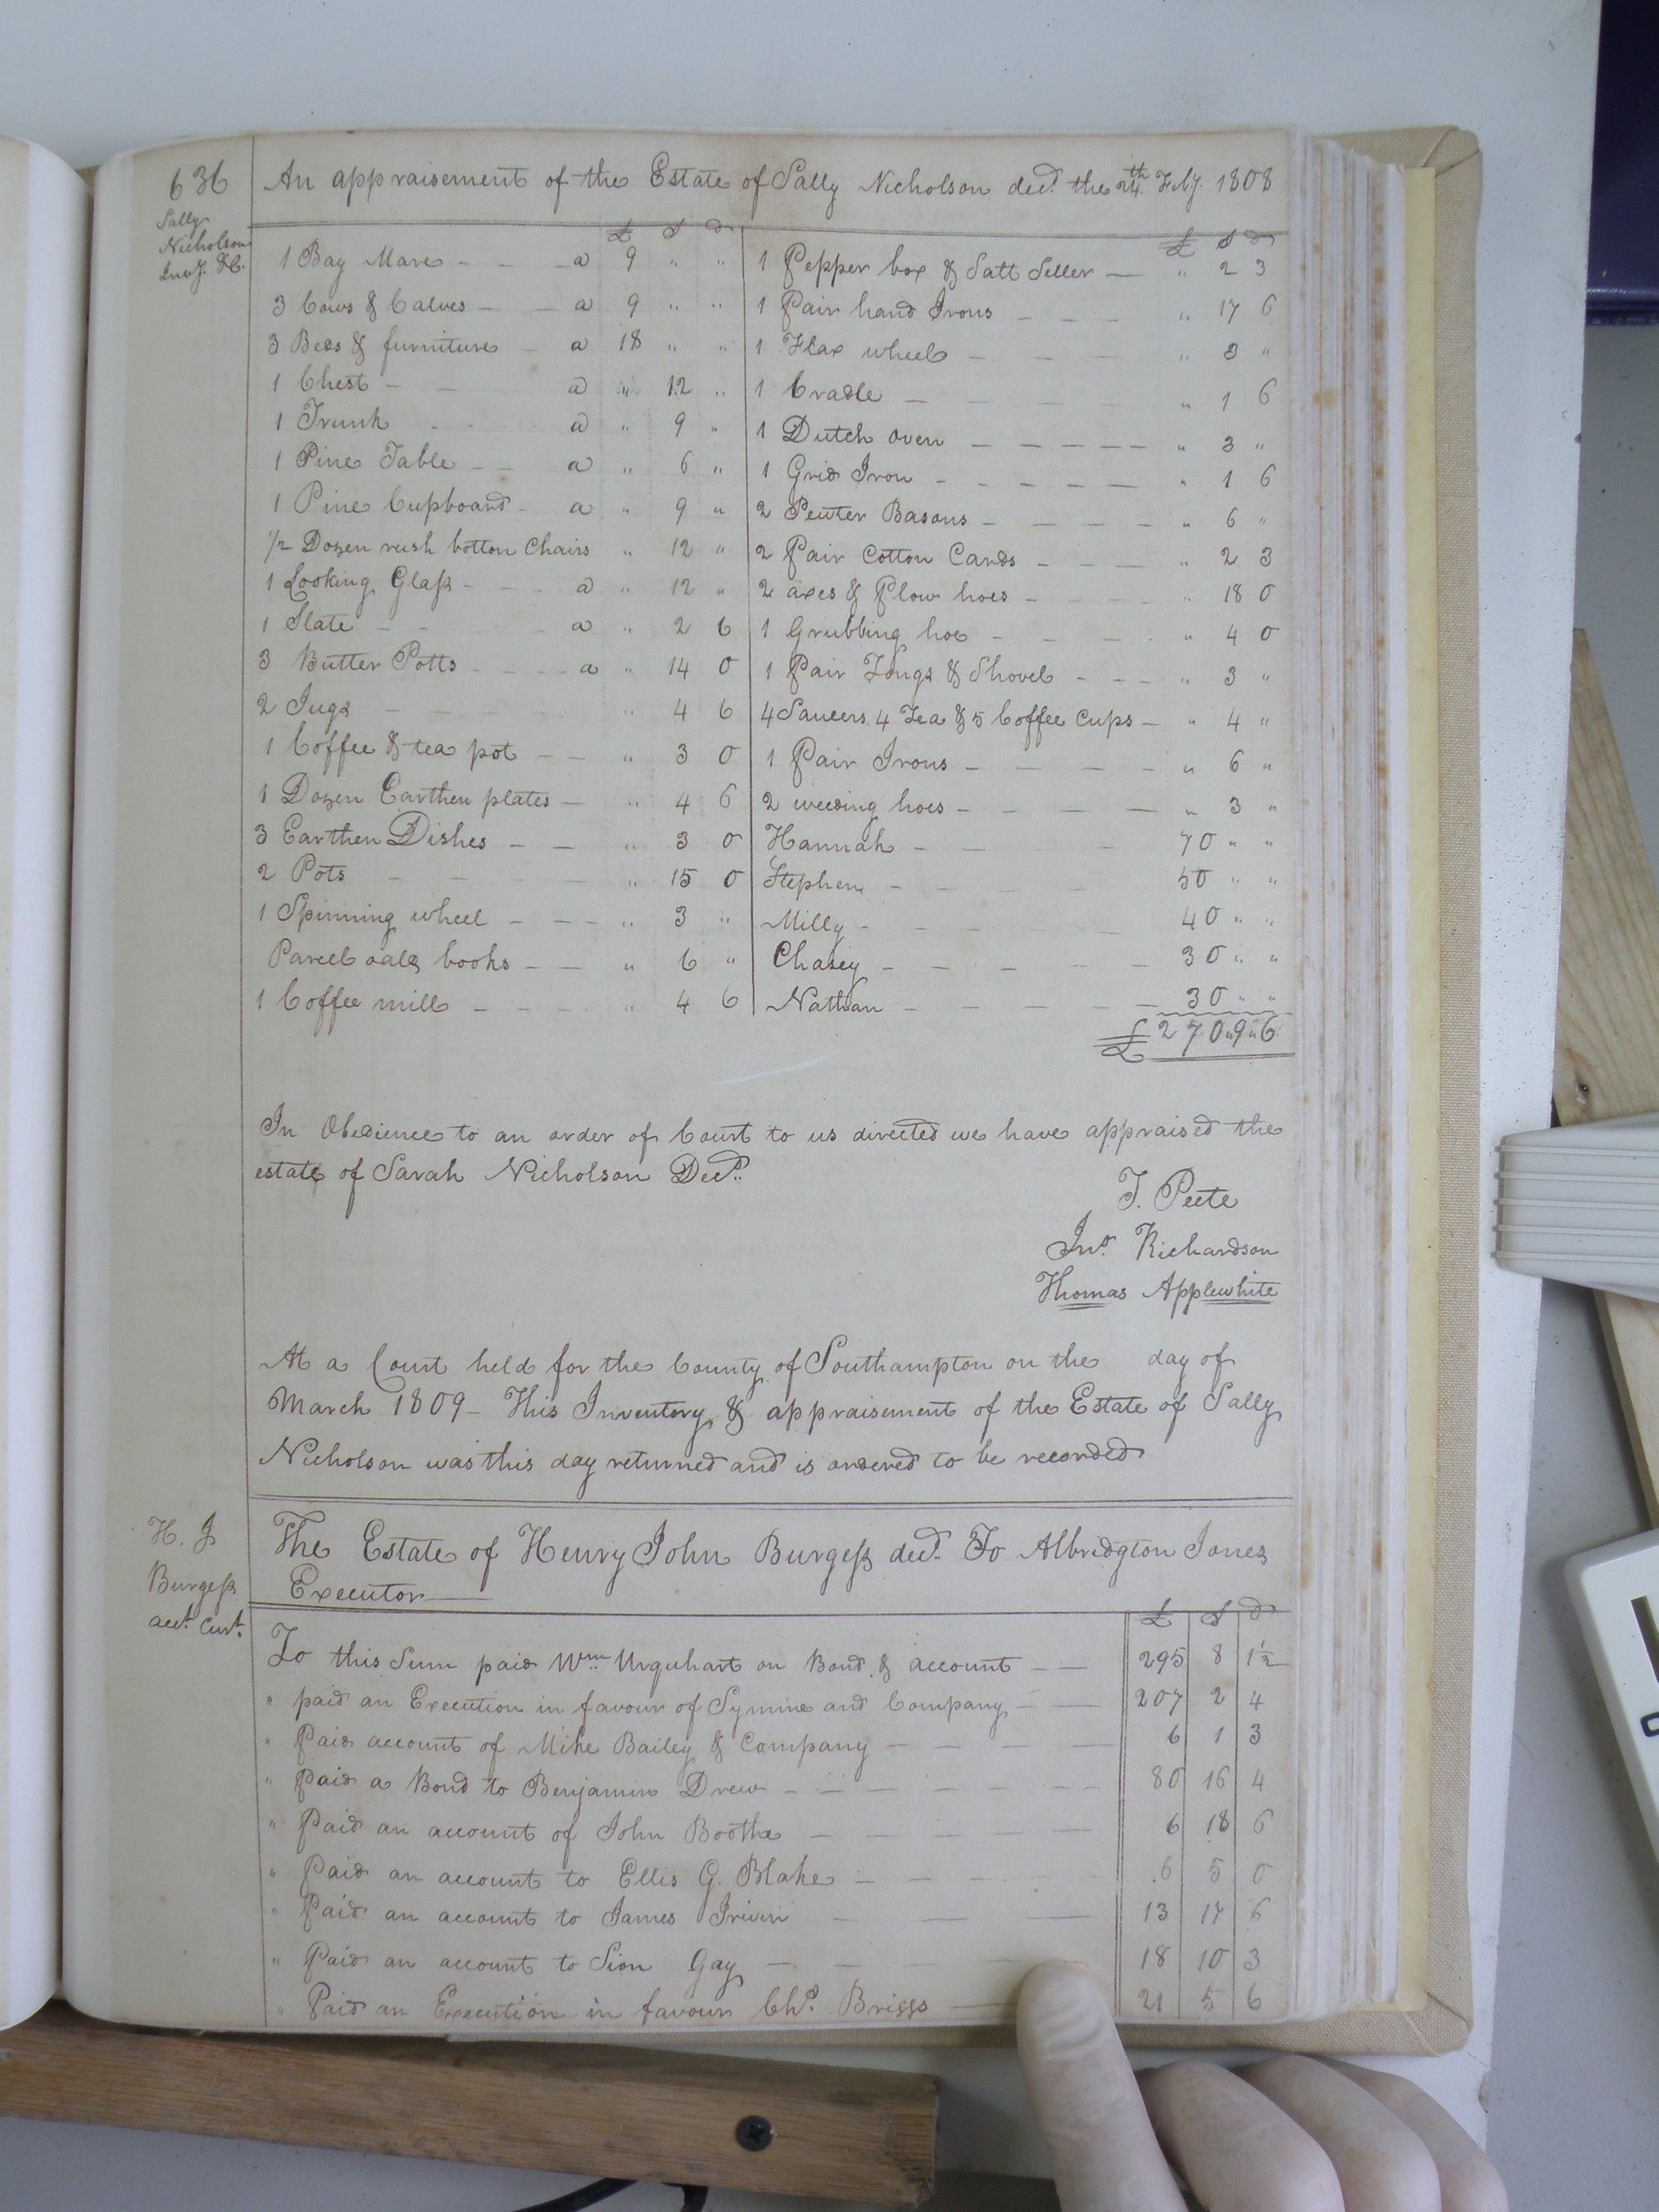 636
An appraisement of the Estate of Sally Nicholson decd. the 24th Feby. 1808
Sally
Nicholson
Invy. &C.
£ S d
1 Bay Mare - - - a 9 " "
3 Cows & Calves - - a 9 " "
3 Beds & furniture - a 18 " "
1 Chest - - a " 12 "
1 Trunk - - a " 9 "
1 Pine Table - - a " 6 "
1 Pine Cupboard - a " 9 "
1/2 Dozen rush bottom Chairs " 12 "
1 Looking Glass - - - a " 12 "
1 Slate - - - a " 2 6
3 Butter Potts - - - - a " 14 0
2 Jugs - - - - " 4 6
1 Coffee & tea pot - - " 3 0
1 Dozen Earthen plates - " 4 6
3 Earthen Dishes - - " 3 0
2 Pots - - - - " 15 0
1 Spinning wheel - - - " 3 "
Parcel oald books - - " 6 "
1 Coffee mill - - - " 4 6
£ S d
1 Pepper box & Satt Seller - " 2 3
1 Pair hand Irons - - - " 17 6
1 Flax wheel - - - " 3 "
1 Cradle - - - - " 1 6
1 Dutch oven - - - - - " 3 "
1 Grid Iron - - - - - " 1 6
2 Peuter Basons - - - - " 6 "
2 Pair Cotton Cards - - - " 2 3
2 axes & Plow hoes - - - " 18 0
1 Grubbing hoe - - - - " 4 0
1 Pair Tongs & Shovel - - - " 3 "
4 Saucers 4 Tea & 5 Coffee Cups - " 4 "
1 Pair Irons - - - - " 6 "
2 weeding hoes - - - - " 3 "
Hannah - - - 70 " "
Stephen - - - - 50 " "
Milly - - - - - 40 " "
Chasey - - - - - 30 " "
Nathan - - - - - 30 " "
£ 270 " 9 " 6
In Obedience to an order of Court to us directed we have appraised the
estate of Sarah Nicholson Decd.
T. Peete
Jno. Richardson
Thomas Applewhite
At a Court held for the County of Southampton on the day of
March 1809 - This Inventory & appraisement of the Estate of Sally
Nicholson was this day returned and is ordered to be recorded
H. J
Burgess
acct. Curt.
The Estate of Henry John Burgess decd. To Albridgton Jones
Executor
£ S d
To this Sum paid Wm. Urquhart on Bond & account - - 295 8 1 1/2
" paid an Execution in favour of Symine and Company - - 207 2 4
" Paid account of Mike Bailey & Company - - - - 6 1 3
" Paid a Bond to Benjamin Drew - - - - - - 80 16 4
" Paid an account of John Boothe - - - - - 6 18 6
" Paid an account to Ellis G. Blake - - - - 6 5 0
" Paid an account to James Irivin - - - 13 17 6
" Paid an account to Sion Gay - - - 18 10 3
" Paid an Execution in favour Chs. Briggs - 21 5 6